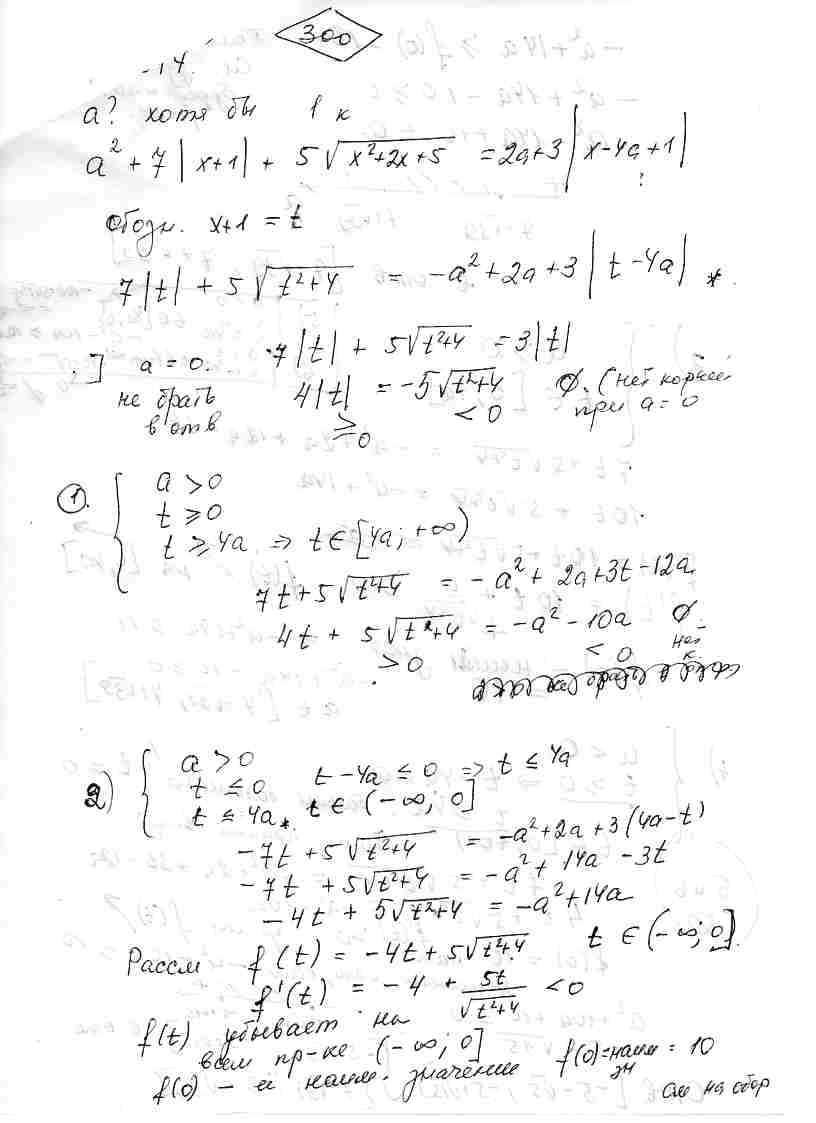 300
-14.
a? хотя бы 1 к
a² + 7|x+1| + 5√(x²+2x+5) = 2a+3|x-4a+1|
Обозн. x+1 = t
7|t| + 5√(t²+4) = -a²+2a+3|t-4a| *
. ] a = 0. 7|t| + 5√(t²+4) = 3|t|
не брать 4|t| = -5√(t²+4) Ø. (нет корней
в отв ≥0 < 0 при a = 0
①. { a > 0
t ≥ 0
t ≥ 4a ⇒ t ∈ [4a; +∞)
7t + 5√(t²+4) = -a² + 2a+3t-12a
4t + 5√(t²+4) = -a² - 10a Ø.
> 0 < 0 нет к.
2) { a > 0
t ≤ 0 t-4a ≤ 0 ⇒ t ≤ 4a
t ≤ 4a * t ∈ (-∞; 0]
-7t + 5√(t²+4) = -a²+2a+3(4a-t)
-7t + 5√(t²+4) = -a² + 14a - 3t
-4t + 5√(t²+4) = -a²+14a
Рассм f(t) = -4t + 5√(t²+4) t ∈ (-∞; 0].
f'(t) = -4 + 5t/√(t²+4) < 0
f(t) убывает на
всем пр-ке (-∞; 0] f(0)=наим = 10
зн
f(0) - ее наим. значение
см на обор